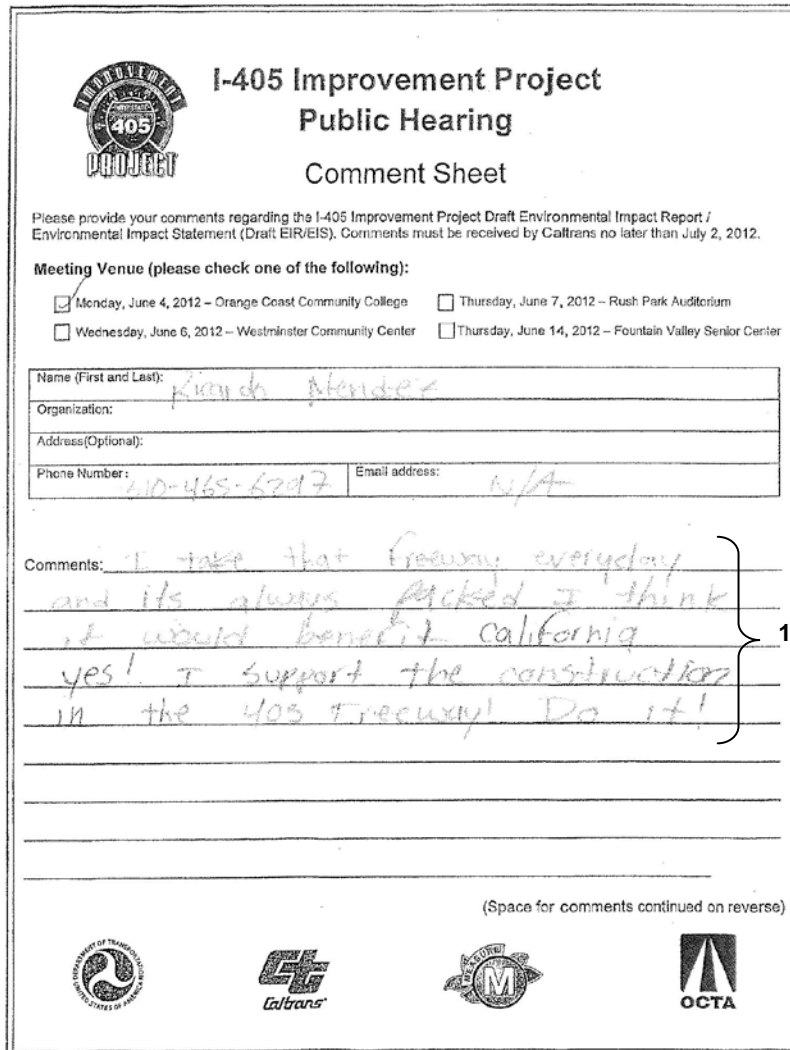 IMPROVEMENT
INTERSTATE
405
PROJECT
I-405 Improvement Project
Public Hearing
Comment Sheet
Please provide your comments regarding the I-405 Improvement Project Draft Environmental Impact Report /
Environmental Impact Statement (Draft EIR/EIS). Comments must be received by Caltrans no later than July 2, 2012.
Meeting Venue (please check one of the following):
Monday, June 4, 2012 – Orange Coast Community College
Thursday, June 7, 2012 – Rush Park Auditorium
Wednesday, June 6, 2012 – Westminster Community Center
Thursday, June 14, 2012 – Fountain Valley Senior Center
Name (First and Last): Mendez
Organization:
Address(Optional):
Phone Number: -465-6297
Email address: N/A
Comments: I take that freeway everyday
and its always packed I think
it would benefit California
yes! I support the construction
in the 405 Freeway! Do it!
1
(Space for comments continued on reverse)
DEPARTMENT OF TRANSPORTATION
UNITED STATES OF AMERICA
Caltrans
MEASURE
M
OCTA